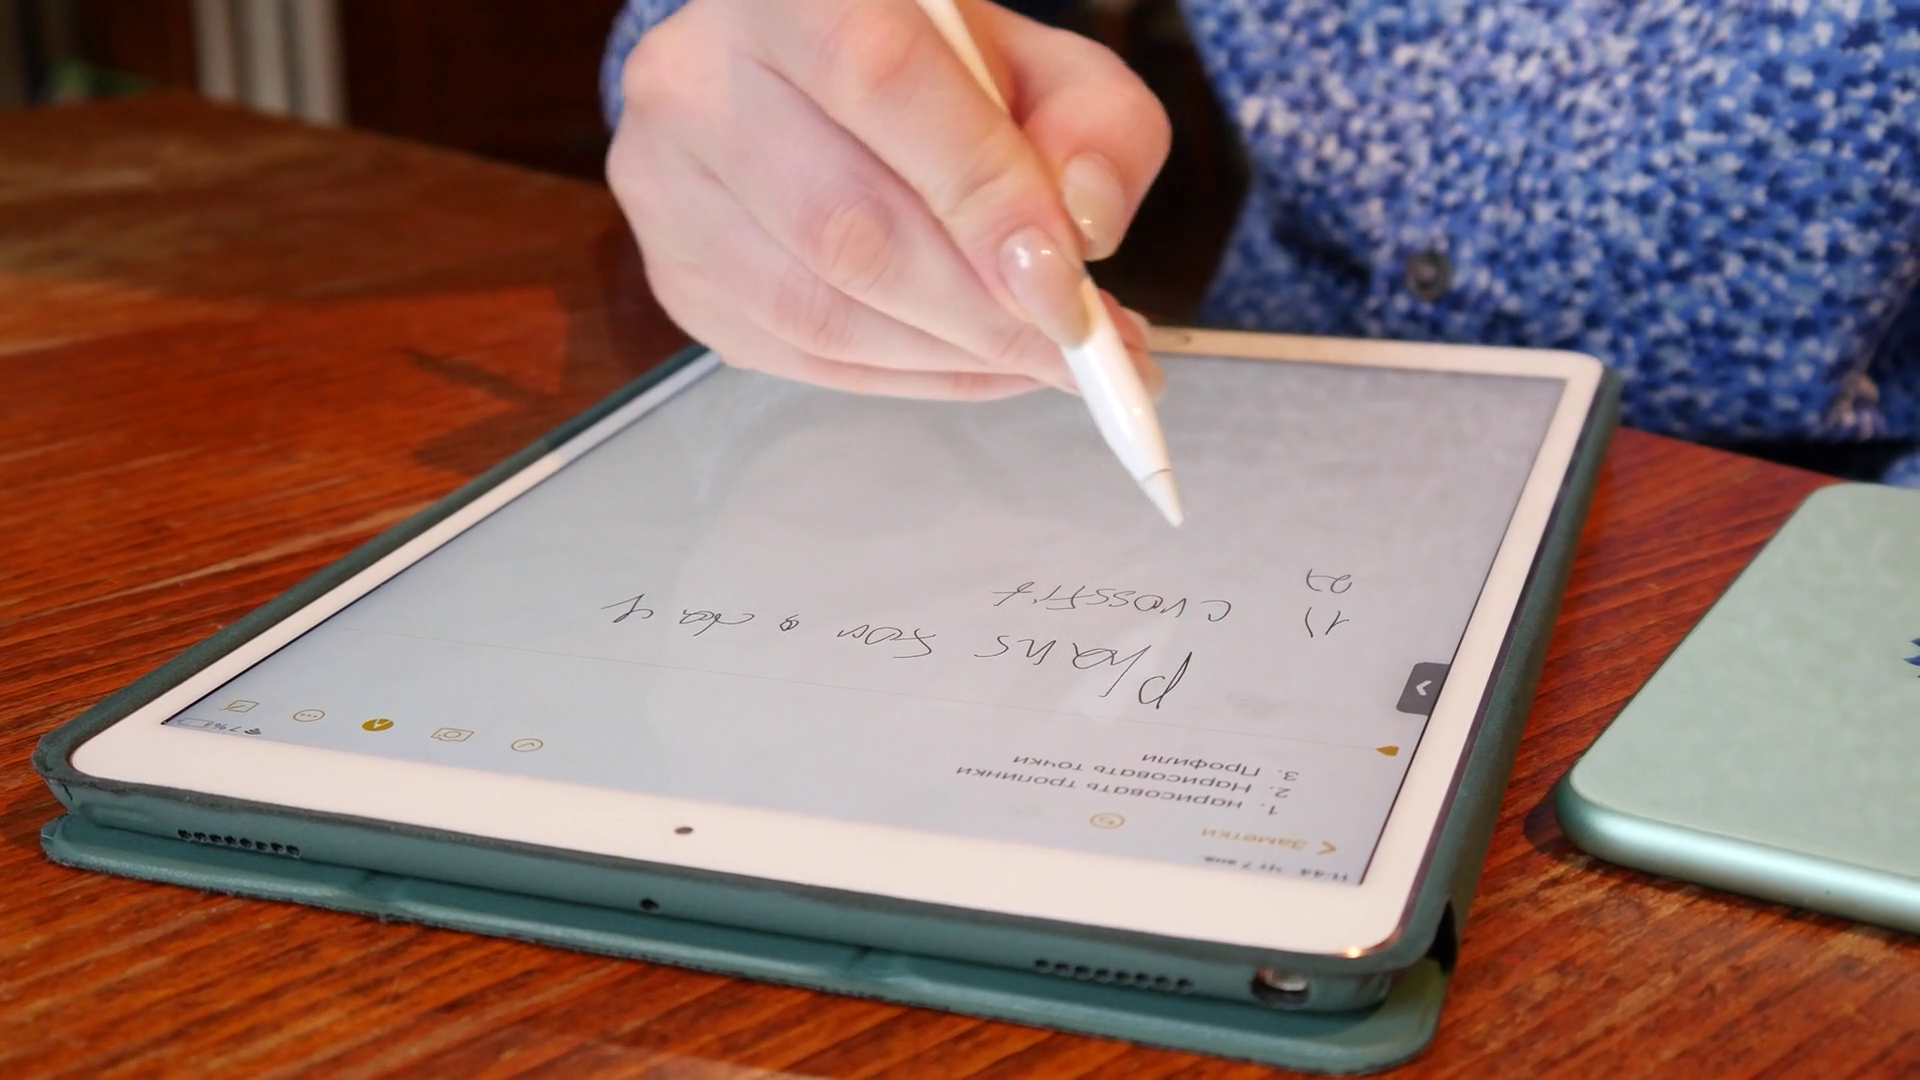 11:44 Чт 7 янв.
Заметки
1. нарисовать тропинки
2. Нарисовать точки
3. Профили
Plans for a day
1) crossfit
2)